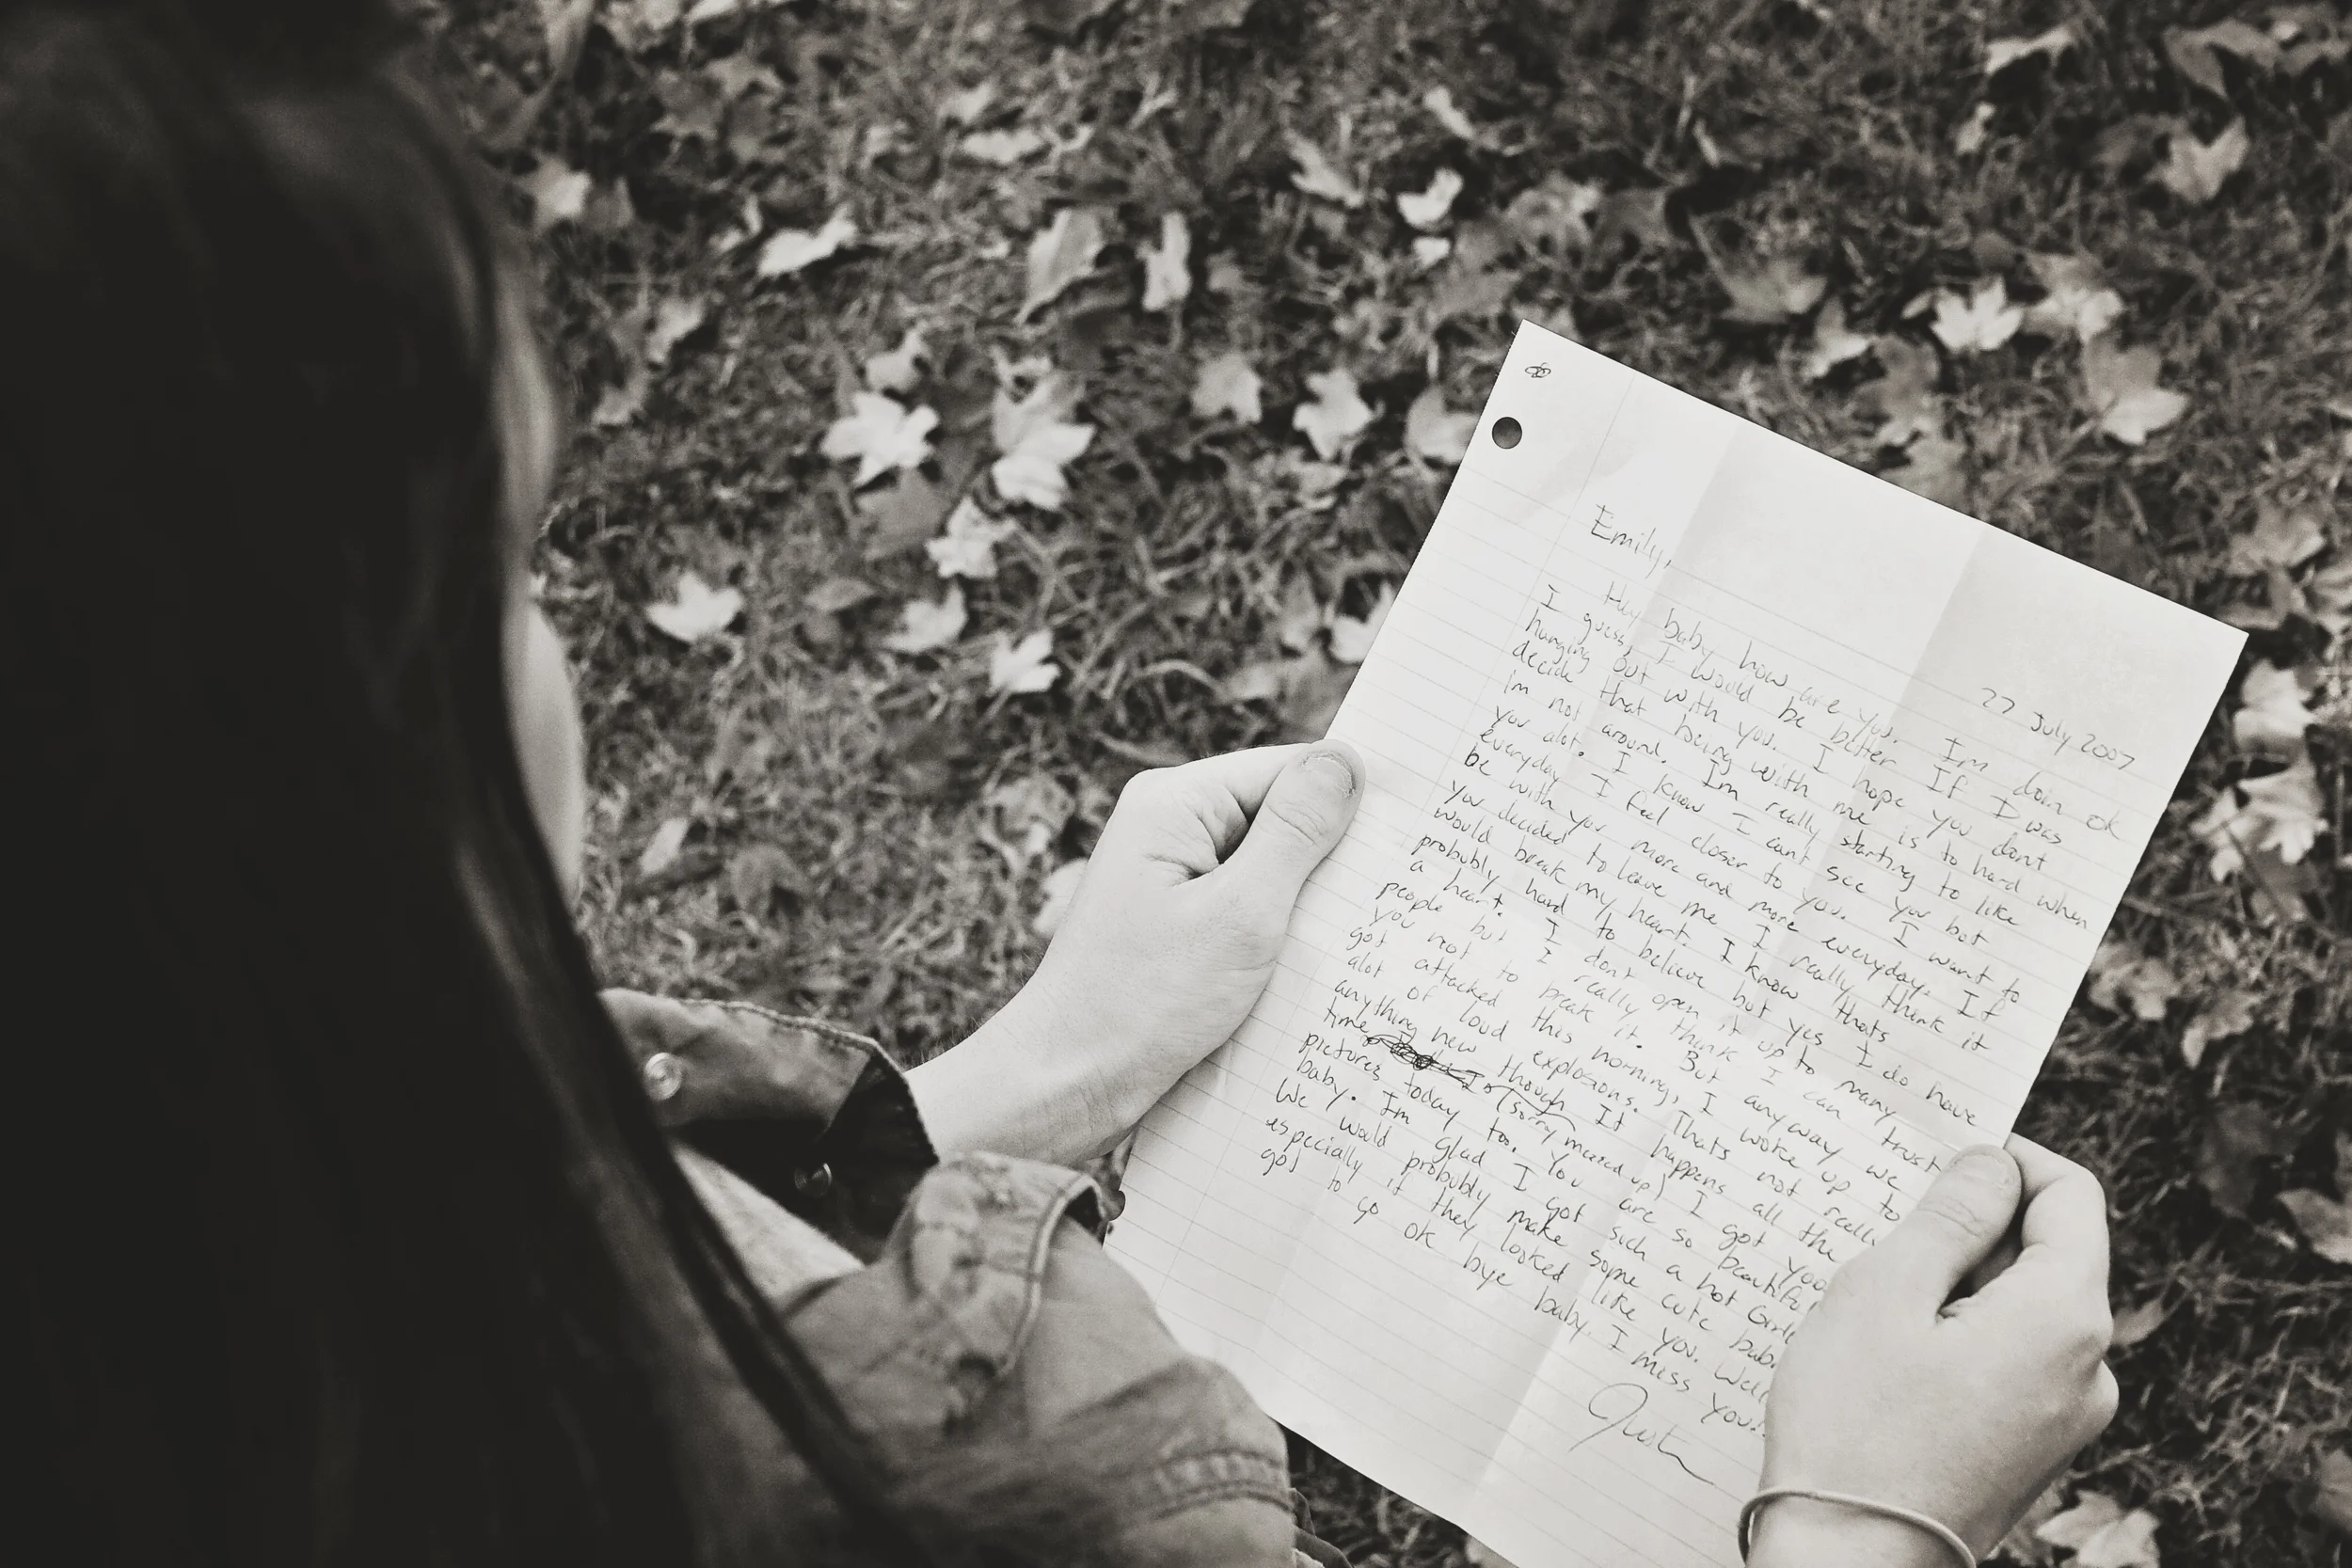 27 July 2007
Emily,
Hey baby how are you. Im doin ok
I guess, I would be better If I was
hanging out with you. I hope you dont
decide that being with me is to hard when
im not around. Im really starting to like
you alot. I know I cant see you but
everyday I feel closer to you. I want to
be with you more and more everyday. If
you decided to leave me I really think it
would break my heart. I know thats
probubly hard to believe but yes I do have
a heart. I dont open it up to many
people but I really think I can trust
you not to break it. But anyway we
got attacked this morning, I woke up to
alot of loud explosions. Thats not really
anything new though It happens all the
time (sorry messed up) I got your
pictures today to. You are so beautiful
baby. Im glad I got such a hot Girl
We would probubly make some cute
especially if they looked like you. Well
got to go ok bye baby. I miss you!
Justin